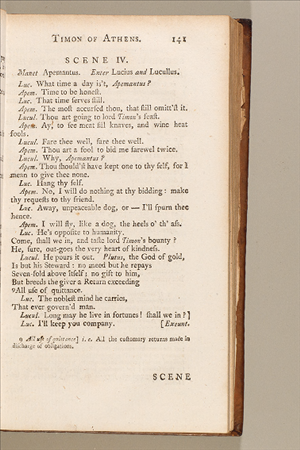 TIMON OF ATHENS. 141
SCENE IV.
Manet Apemantus. Enter Lucius and Lucullus.
Luc. What time a day is't, Apemantus?
Apem. Time to be honest.
Luc. That time serves still.
Apem. The most accursed thou, that still omitt'st it.
Lucul. Thou art going to lord Timon's feast.
Apem. Ay, to see meat fill knaves, and wine heat
fools.
Lucul. Fare thee well, fare thee well.
Apem. Thou art a fool to bid me farewel twice.
Lucul. Why, Apemantus?
Apem. Thou should'st have kept one to thy self, for I
mean to give thee none.
Luc. Hang thy self.
Apem. No, I will do nothing at thy bidding: make
thy requests to thy friend.
Luc. Away, unpeaceable dog, or — I'll spurn thee
hence.
Apem. I will fly, like a dog, the heels o' th' ass.
Luc. He's opposite to humanity.
Come, shall we in, and taste lord Timon's bounty?
He, sure, out-goes the very heart of kindness.
Lucul. He pours it out. Plutus, the God of gold,
Is but his Steward: no meed but he repays
Seven-fold above itself; no gift to him,
But breeds the giver a Return exceeding
9All use of quittance.
Luc. The noblest mind he carries,
That ever govern'd man.
Lucul. Long may he live in fortunes! shall we in?]
Luc. I'll keep you company. [Exeunt.
9 All use of quittance] i. e. All the customary returns made in
discharge of obligations.
SCENE